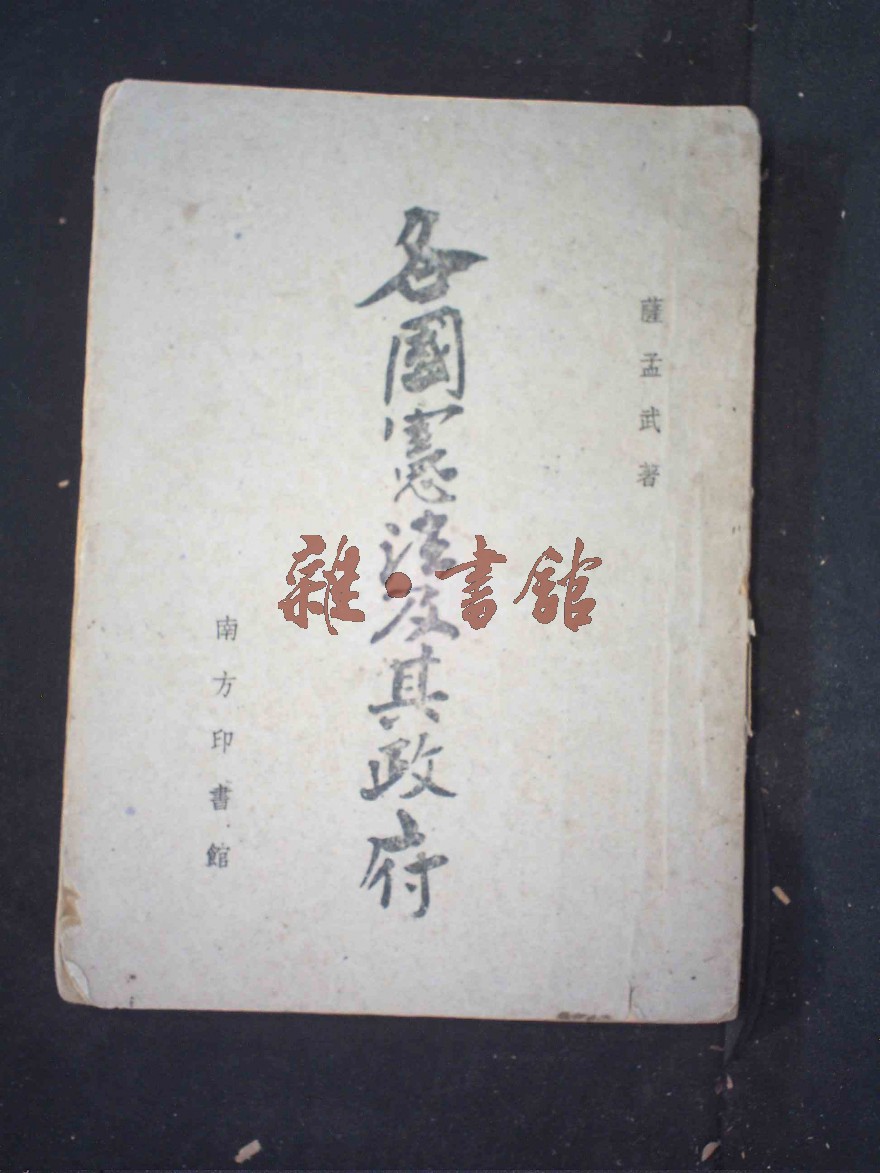 薩孟武著
各國憲法及其政府
南方印書館
雜·書館